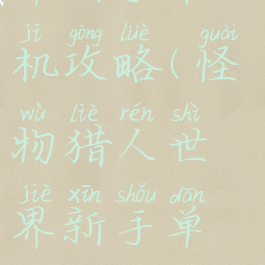 jī gōng lüè guài
机攻略(怪
wù liè rén shì
物猎人世
jiè xīn shǒu dān
界新手单